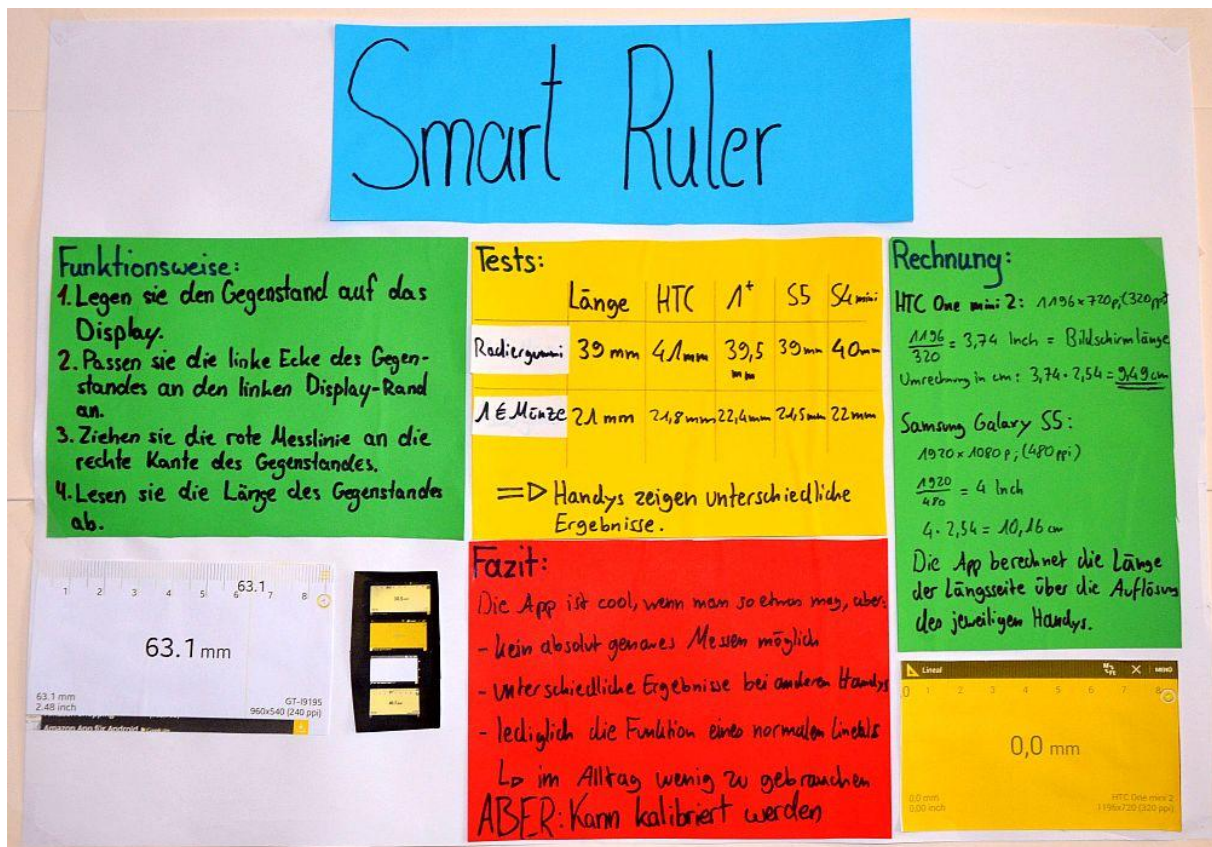 Smart Ruler
Funktionsweise:
1. Legen sie den Gegenstand auf das
Display.
2. Passen sie die linke Ecke des Gegen-
standes an den linken Display-Rand
an.
3. Ziehen sie die rote Messlinie an die
rechte Kante des Gegenstandes.
4. Lesen sie die Länge des Gegenstandes
ab.
Tests:
Länge HTC 1+ S5 S4 mini
Radiergummi 39 mm 41mm 39,5 mm 39mm 40mm
1 € Münze 21 mm 21,8mm 22,4mm 21,5mm 22mm
=> Handys zeigen unterschiedliche
Ergebnisse.
Fazit:
Die App ist cool, wenn man so etwas mag, aber:
- kein absolut genaues Messen möglich
- unterschiedliche Ergebnisse bei anderen Handys
- lediglich die Funktion eines normalen Lineals
↳ im Alltag wenig zu gebrauchen
ABER: Kann kalibriert werden
Rechnung:
HTC One mini 2: 1196x720p;(320ppi)
1196/320 = 3,74 Inch = Bildschirmlänge
Umrechnung in cm: 3,74 · 2,54 = 9,49 cm
Samsung Galaxy S5:
1920 x 1080 p; (480 ppi)
1920/480 = 4 Inch
4 · 2,54 = 10,16 cm
Die App berechnet die Länge
der Längsseite über die Auflösung
des jeweiligen Handys.
1 2 3 4 5 6 7 8
63.1
63.1 mm
63.1 mm
2.48 inch
GT-I9195
960x540 (240 ppi)
Amazon App für Android
Lineal
MENÜ
0 1 2 3 4 5 6 7 8
0,0 mm
0,0 mm
0,00 inch
HTC One mini 2
1196x720 (320 ppi)